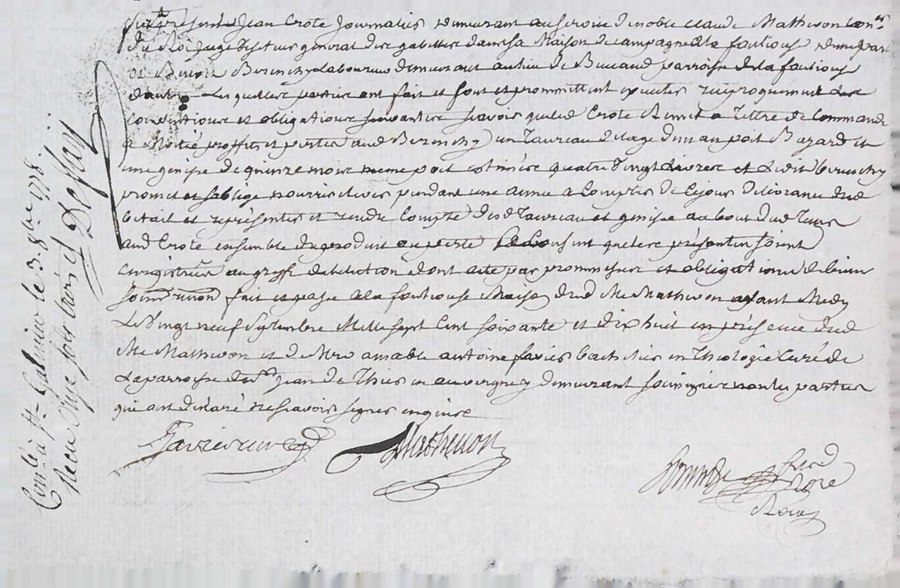 présent Jean Crote Journalier demeurant au service de noble claude Mathevon Con.er
du Roi Juge general de gabelles dans sa Maison de campagne de la fouliouse d'une part
et Benoit Berenchy Laboureur demeurant au lieu de parroisse de la fouliouse
d'autre Lesquelles parties ont fait et font et promettent executer reciproquement les
conventions et obligations suivantes scavoir que led Crote Remet a Tittre de Commande
a Moitié proffits et pertes aud Berenchy un Taureau de lage d'un an poil Bazard et
une genisse de quinze mois meme poil estimés quatre Vingt Livres et Ledit Berenchy
promet et soblige nourrir et iver pendant une année a Compter de ce jour
betail et representer et rendre Compte desd Taureau et genisse au bout dud Tems
aud Crote ensemble du produit ou perte et Consent que les présentes soient
Enregistrées au greffe de lelection dont acte par prommesses et obligations de biens
soumission fait et passé a la fouliouse Maison dud Me Mathevon avant Midy
Le Vingt neuf Septembre Mille sept Cent soixante et dix huit en présence dud
Me Mathevon et de Mre amable antoine favier bachelier en Theologie Curé de
La parroisse de St Jean de en auvergne y demeurant soussignés non les parties
qui ont déclaré ne scavoir signer enquises
favier curé
Mathevon
No.re
Roial
Con.lé a St Galmier le 3. 8bre 1778.
Recu sols